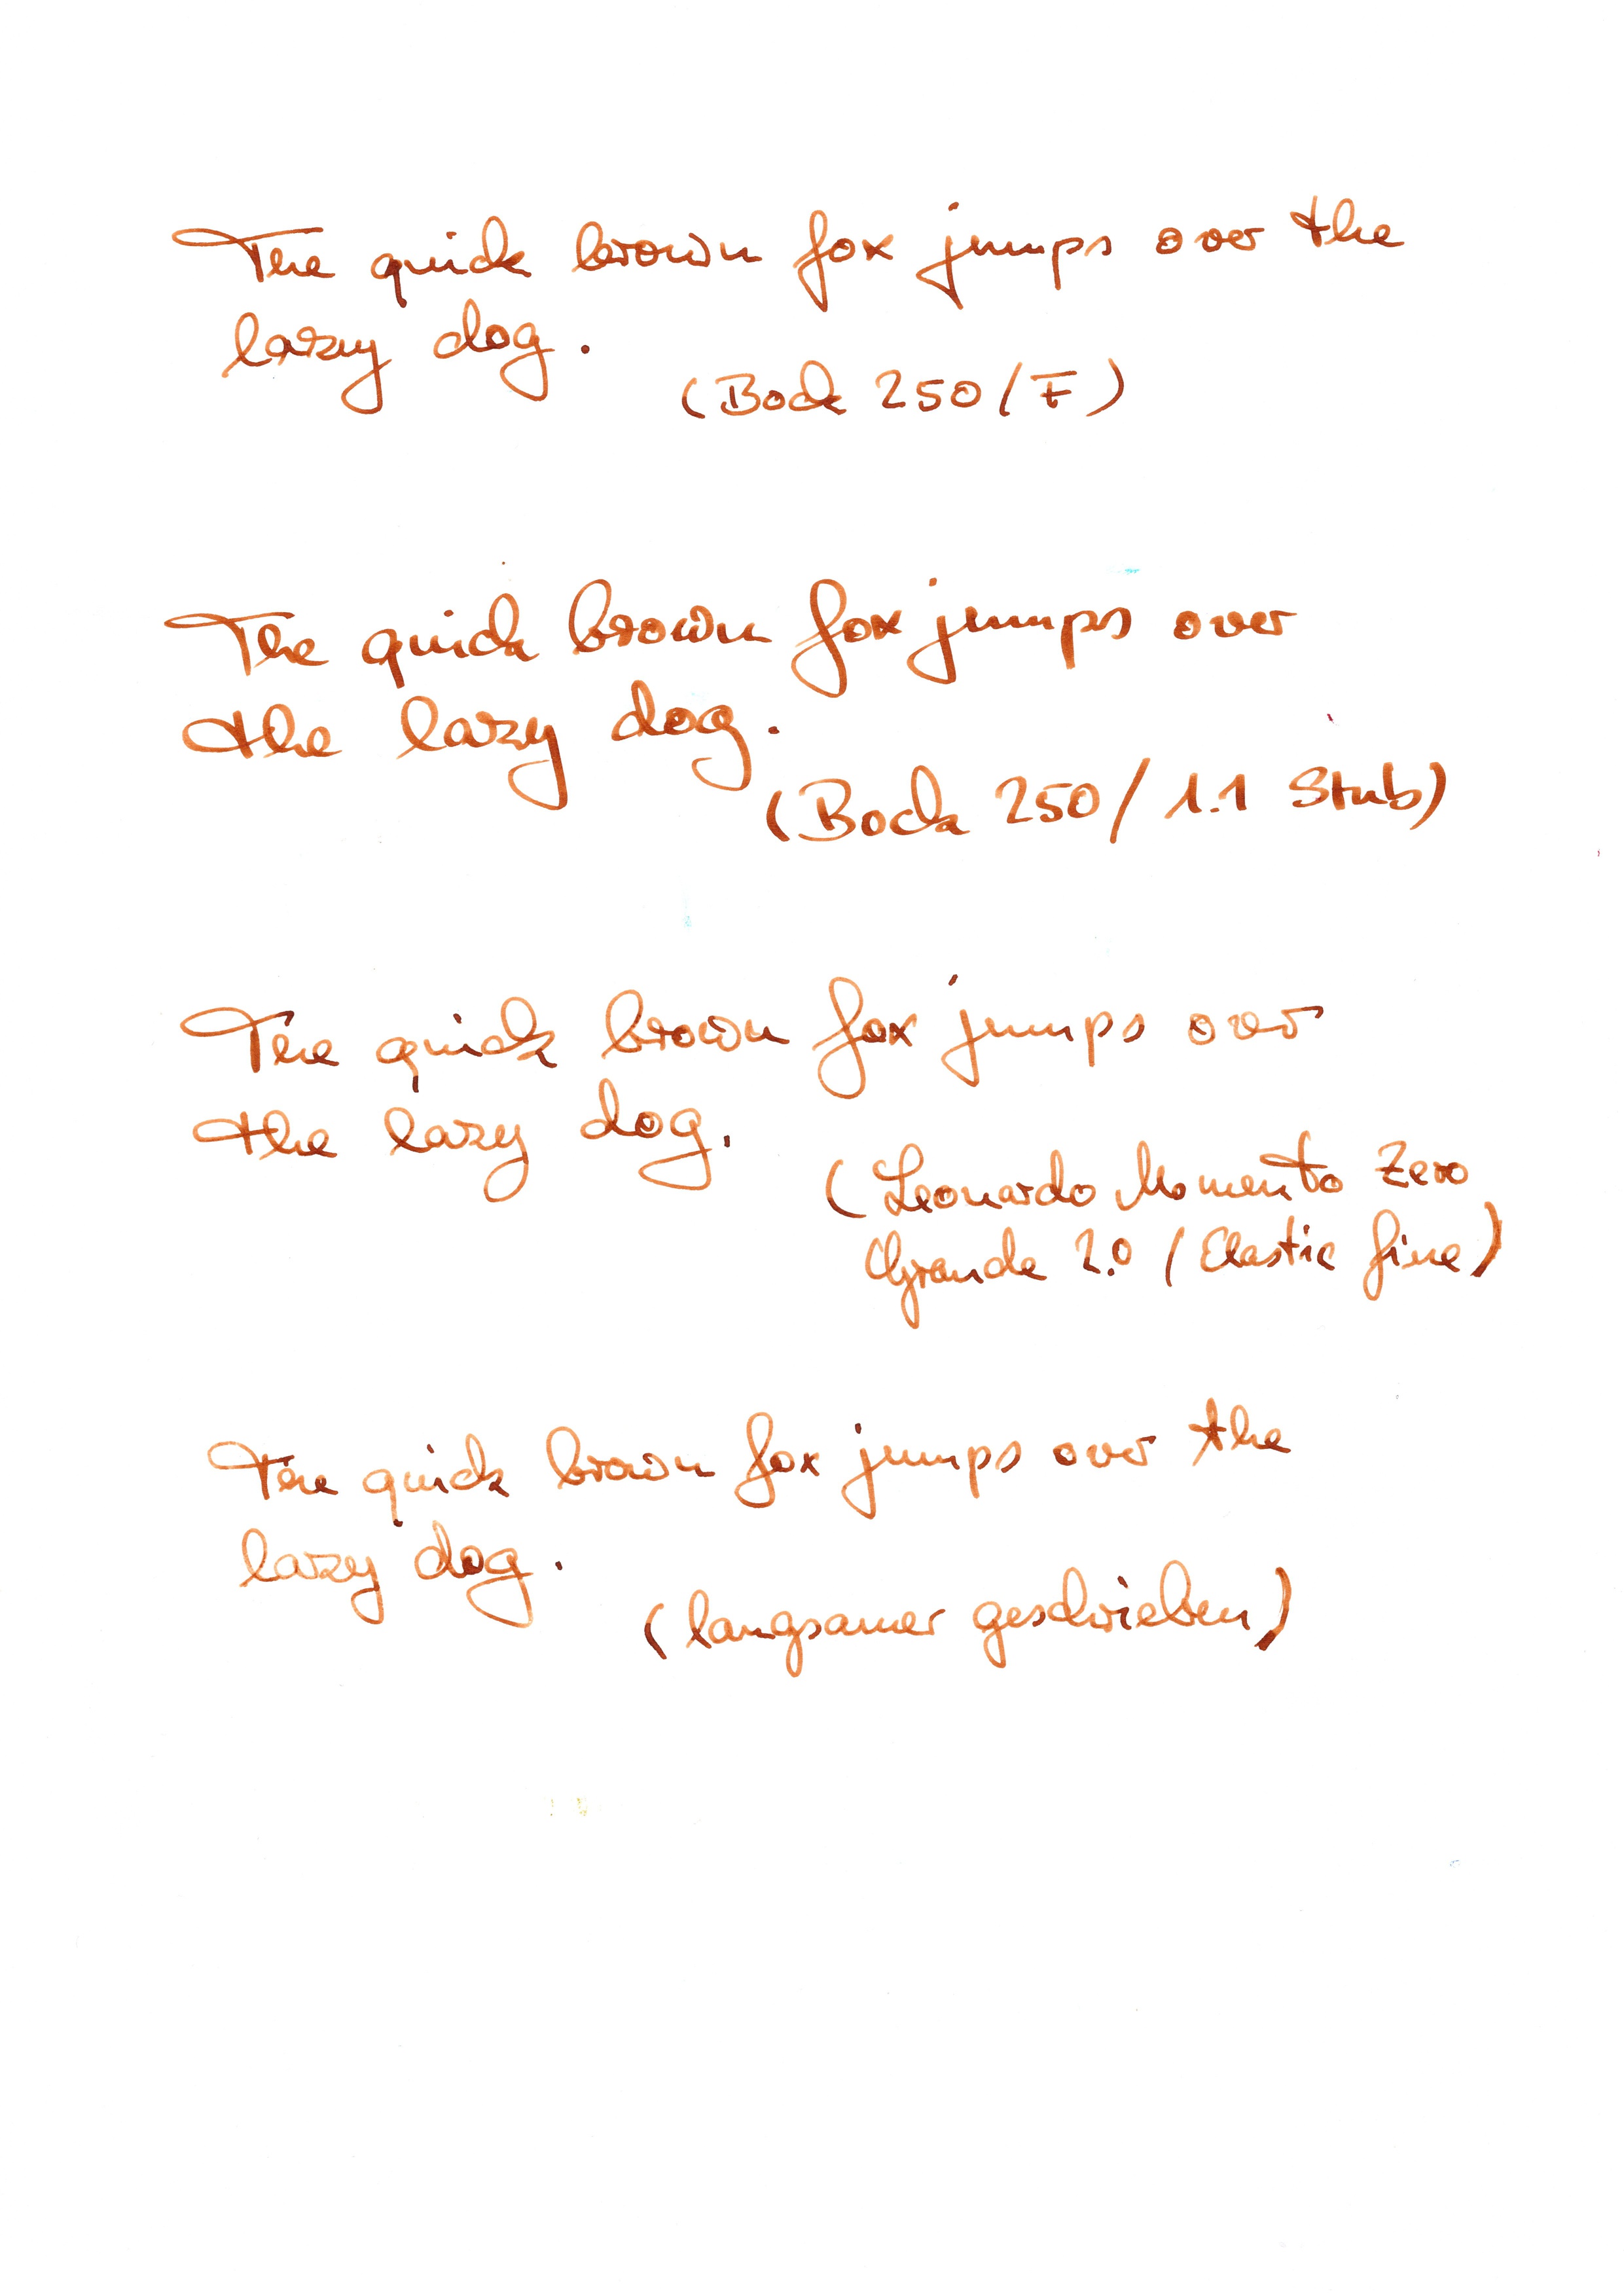 The quick brown fox jumps over the
lazy dog.
(Bock 250/F)
The quick brown fox jumps over
the lazy dog.
(Bock 250/1.1 Stub)
The quick brown fox jumps over
the lazy dog.
(Leonardo Momento Zero
Grande 2.0 (Elastic fine)
The quick brown fox jumps over the
lazy dog.
(langsamer geschrieben)